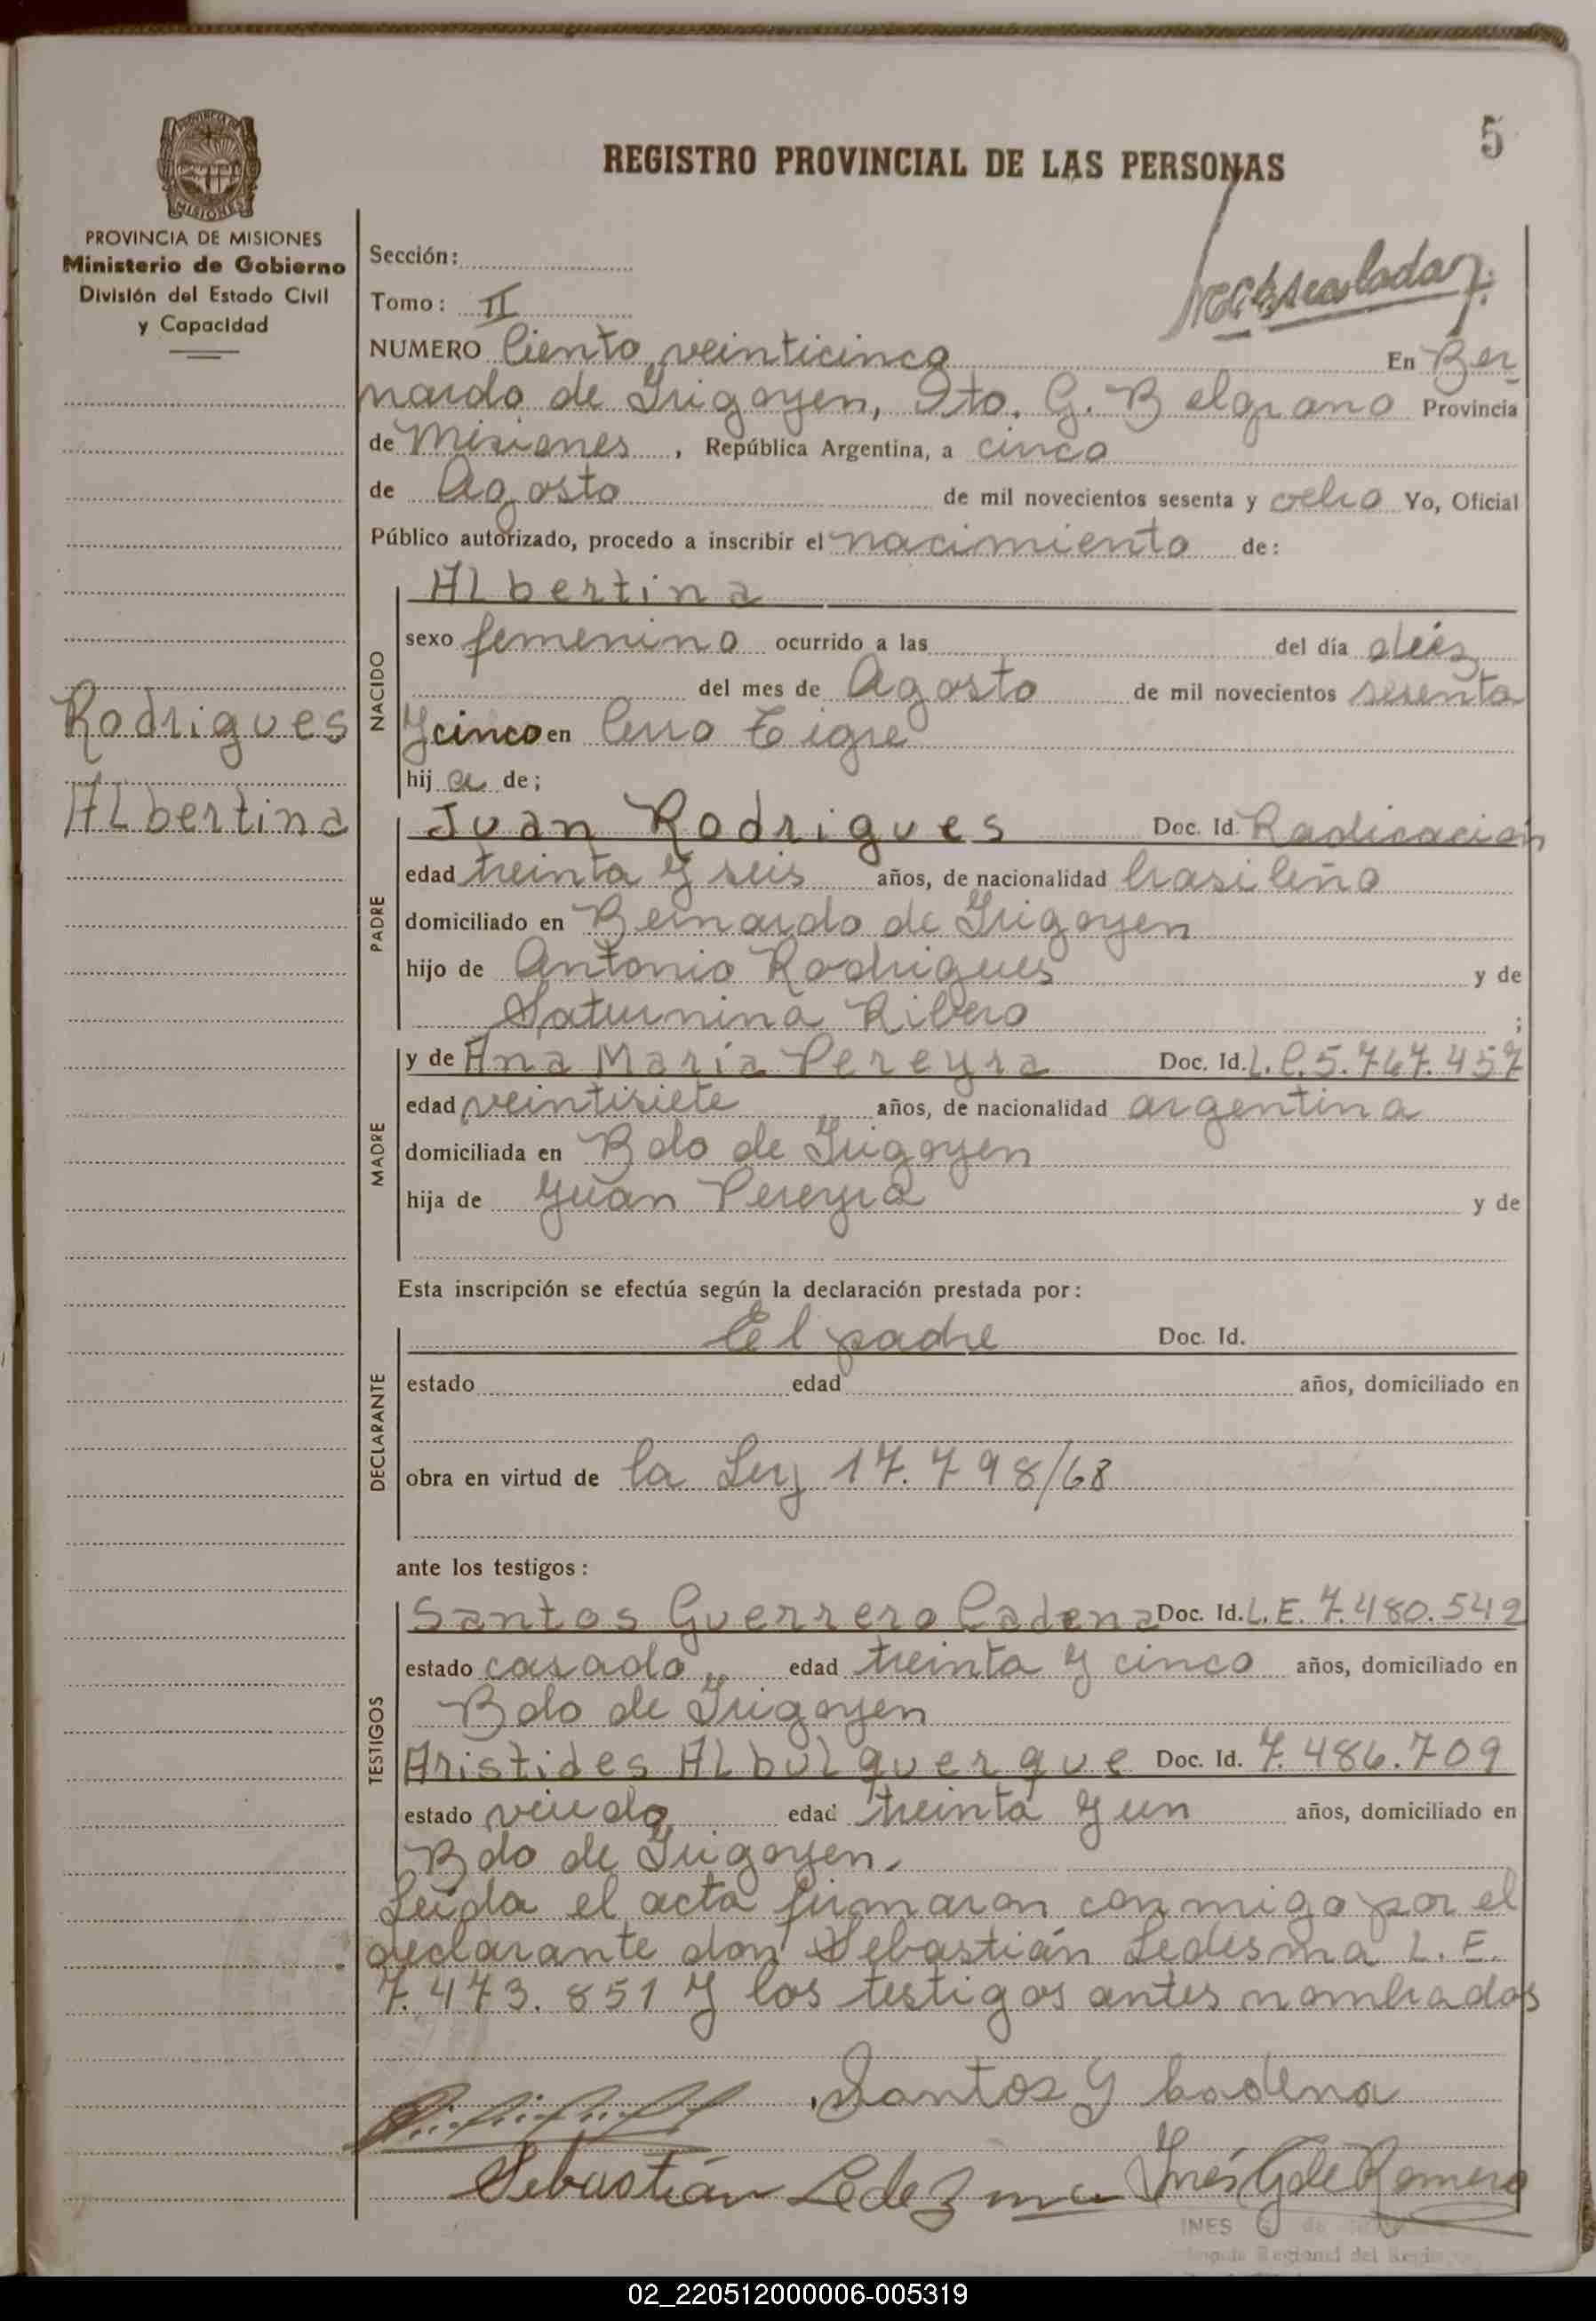 5
REGISTRO PROVINCIAL DE LAS PERSONAS
PROVINCIA DE MISIONES
PROVINCIA DE MISIONES
Ministerio de Gobierno
División del Estado Civil
y Capacidad
Sección:
Tomo: II
NUMERO Ciento veinticinco En Ber-
nardo de Irigoyen, Dto. G. Belgrano Provincia
de Misiones, República Argentina, a cinco
de Agosto de mil novecientos sesenta y ocho Yo, Oficial
Público autorizado, procedo a inscribir el nacimiento de:
Rodrigues
Albertina
NACIDO
Albertina
sexo femenino ocurrido a las del día diez
del mes de Agosto de mil novecientos sesenta
y cinco en Cerro Tigre
hij a de;
PADRE
Juan Rodrigues Doc. Id. Radicación
edad treinta y seis años, de nacionalidad brasileño
domiciliado en Bernardo de Irigoyen
hijo de Antonio Rodrigues y de
Saturnina Ribero ;
MADRE
y de Ana María Pereyra Doc. Id. L.C. 5.767.457
edad veintisiete años, de nacionalidad argentina
domiciliada en Bdo de Irigoyen
hija de Juan Pereyra y de
Esta inscripción se efectúa según la declaración prestada por:
DECLARANTE
El padre Doc. Id.
estado edad años, domiciliado en
obra en virtud de la Ley 17.798/68
ante los testigos:
TESTIGOS
Santos Guerrero Cadena Doc. Id. L.E. 7.480.542
estado casado, edad treinta y cinco años, domiciliado en
Bdo de Irigoyen
Aristides Albulquerque Doc. Id. 7.486.709
estado viudo edad treinta y un años, domiciliado en
Bdo de Irigoyen.
Leída el acta firmaron conmigo por el
declarante don Sebastián Ledesma L.E.
7.473.851 y los testigos antes nombrados
Santos G Cadena
Sebastián Ledezma Inés G de Romero
INES G de
Regional del
02_220512000006-005319